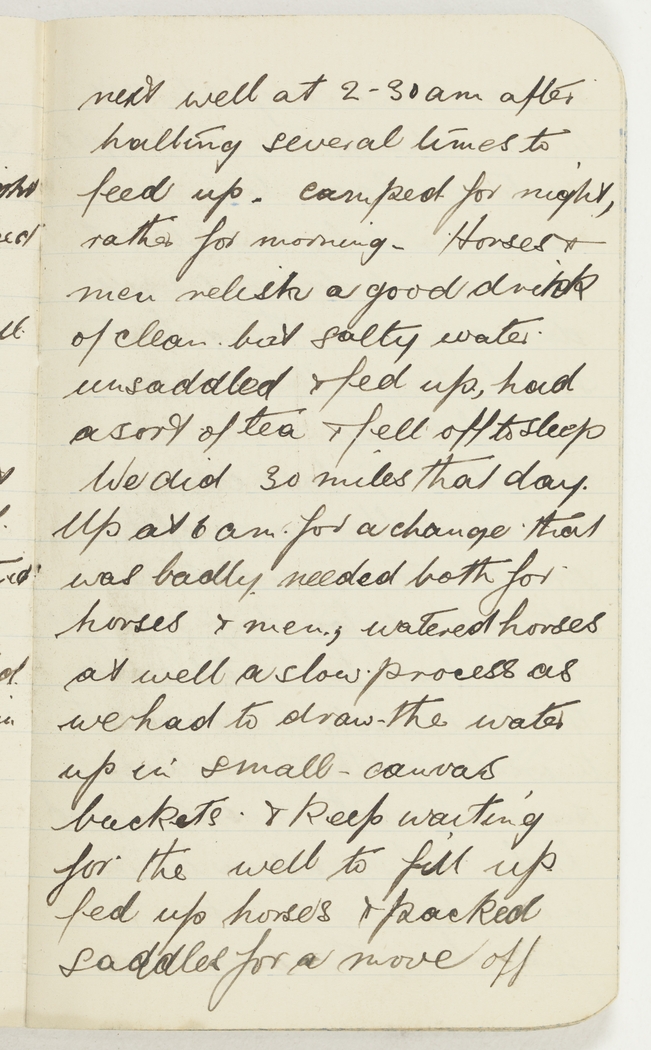 next well at 2-30 am after
halting several times to
feed up. camped for night,
rather for morning - Horses &
men relish a good drink
of clean but salty water
unsaddled & fed up, had
a sort of tea & fell off to sleep
We did 30 miles that day.
Up at 6 am. for a change that
was badly needed both for
horses & men; watered horses
at well a slow process as
we had to draw the water
up in small - canvas
buckets & keep waiting
for the well to fill up
fed up horses & packed
saddles for a move off